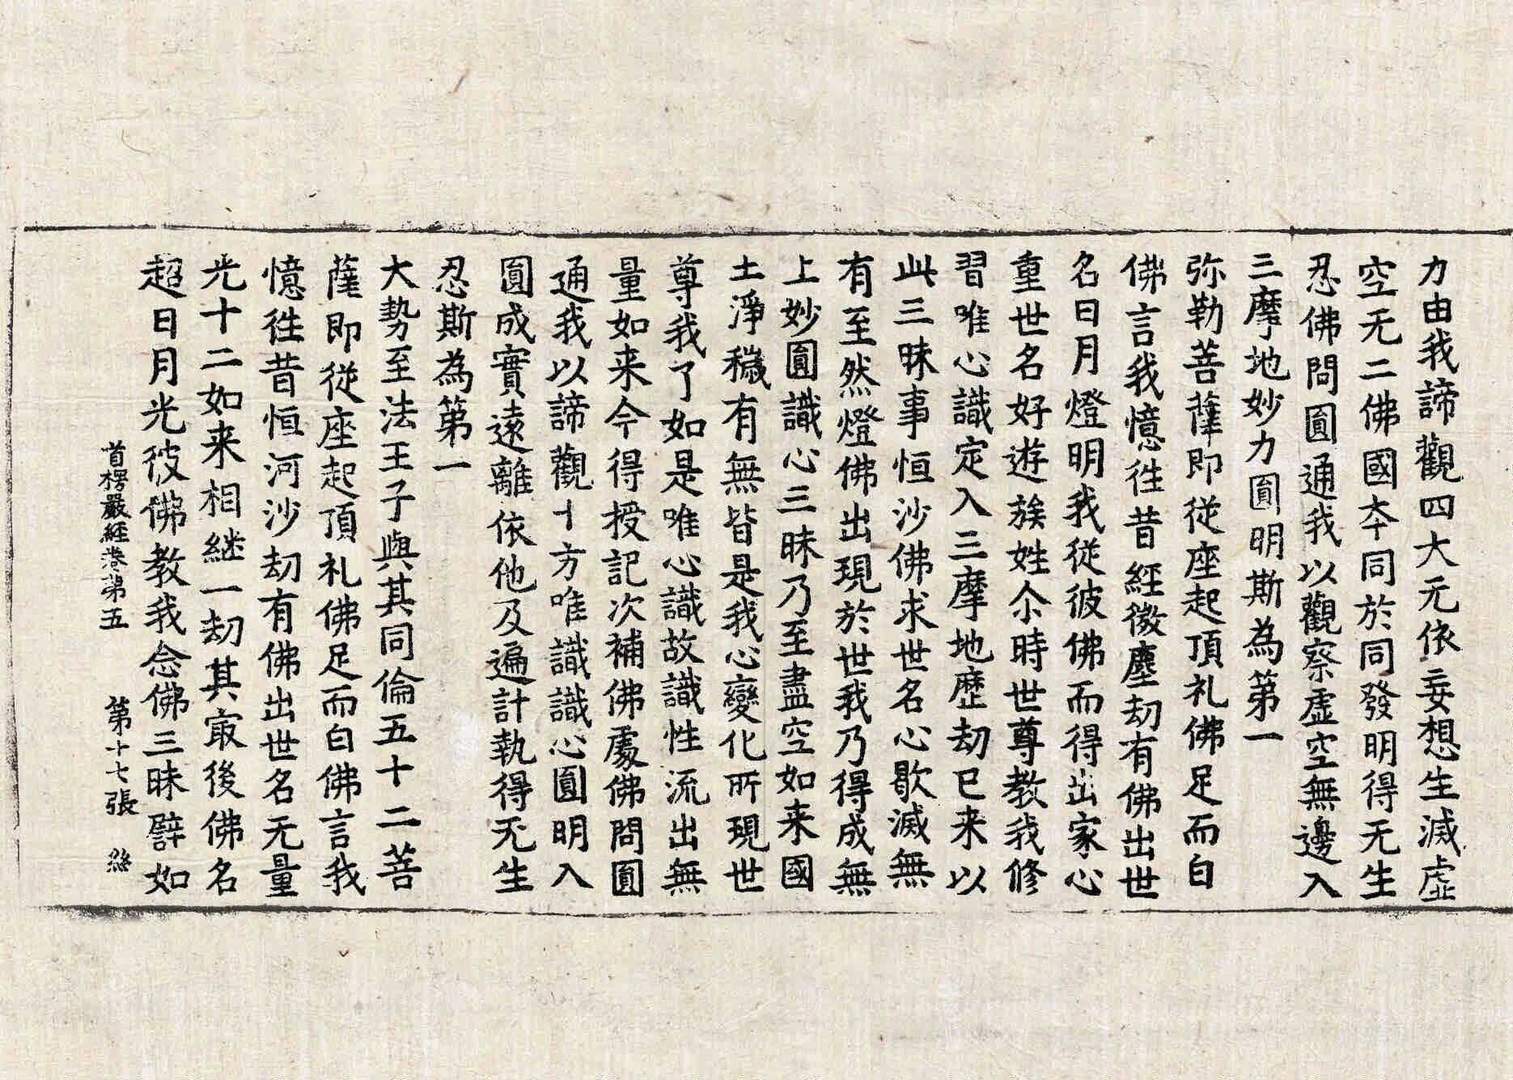 力由我諦觀四大元依妄想生滅虛
空无二佛國夲同於同發明得无生
忍佛問圓通我以觀察虛空無邊入
三摩地妙力圓明斯為第一
弥勒菩薩即從座起頂礼佛足而白
佛言我憶徃昔經微塵劫有佛出世
名日月燈明我從彼佛而得出家心
重世名好遊族姓尒時世尊教我修
習唯心識定入三摩地歷劫已来以
此三昧事恒沙佛求世名心歇滅無
有至然燈佛出現於世我乃得成無
上妙圓識心三昧乃至盡空如来國
土淨穢有無皆是我心變化所現世
尊我了如是唯心識故識性流出無
量如来今得授記次補佛處佛問圓
通我以諦觀十方唯識識心圓明入
圓成實遠離依他及遍計執得无生
忍斯為第一
大勢至法王子與其同倫五十二菩
薩即從座起頂礼佛足而白佛言我
憶徃昔恒河沙劫有佛出世名无量
光十二如来相継一劫其㝡後佛名
超日月光彼佛教我念佛三昧譬如
首楞嚴經卷第五 第十七張